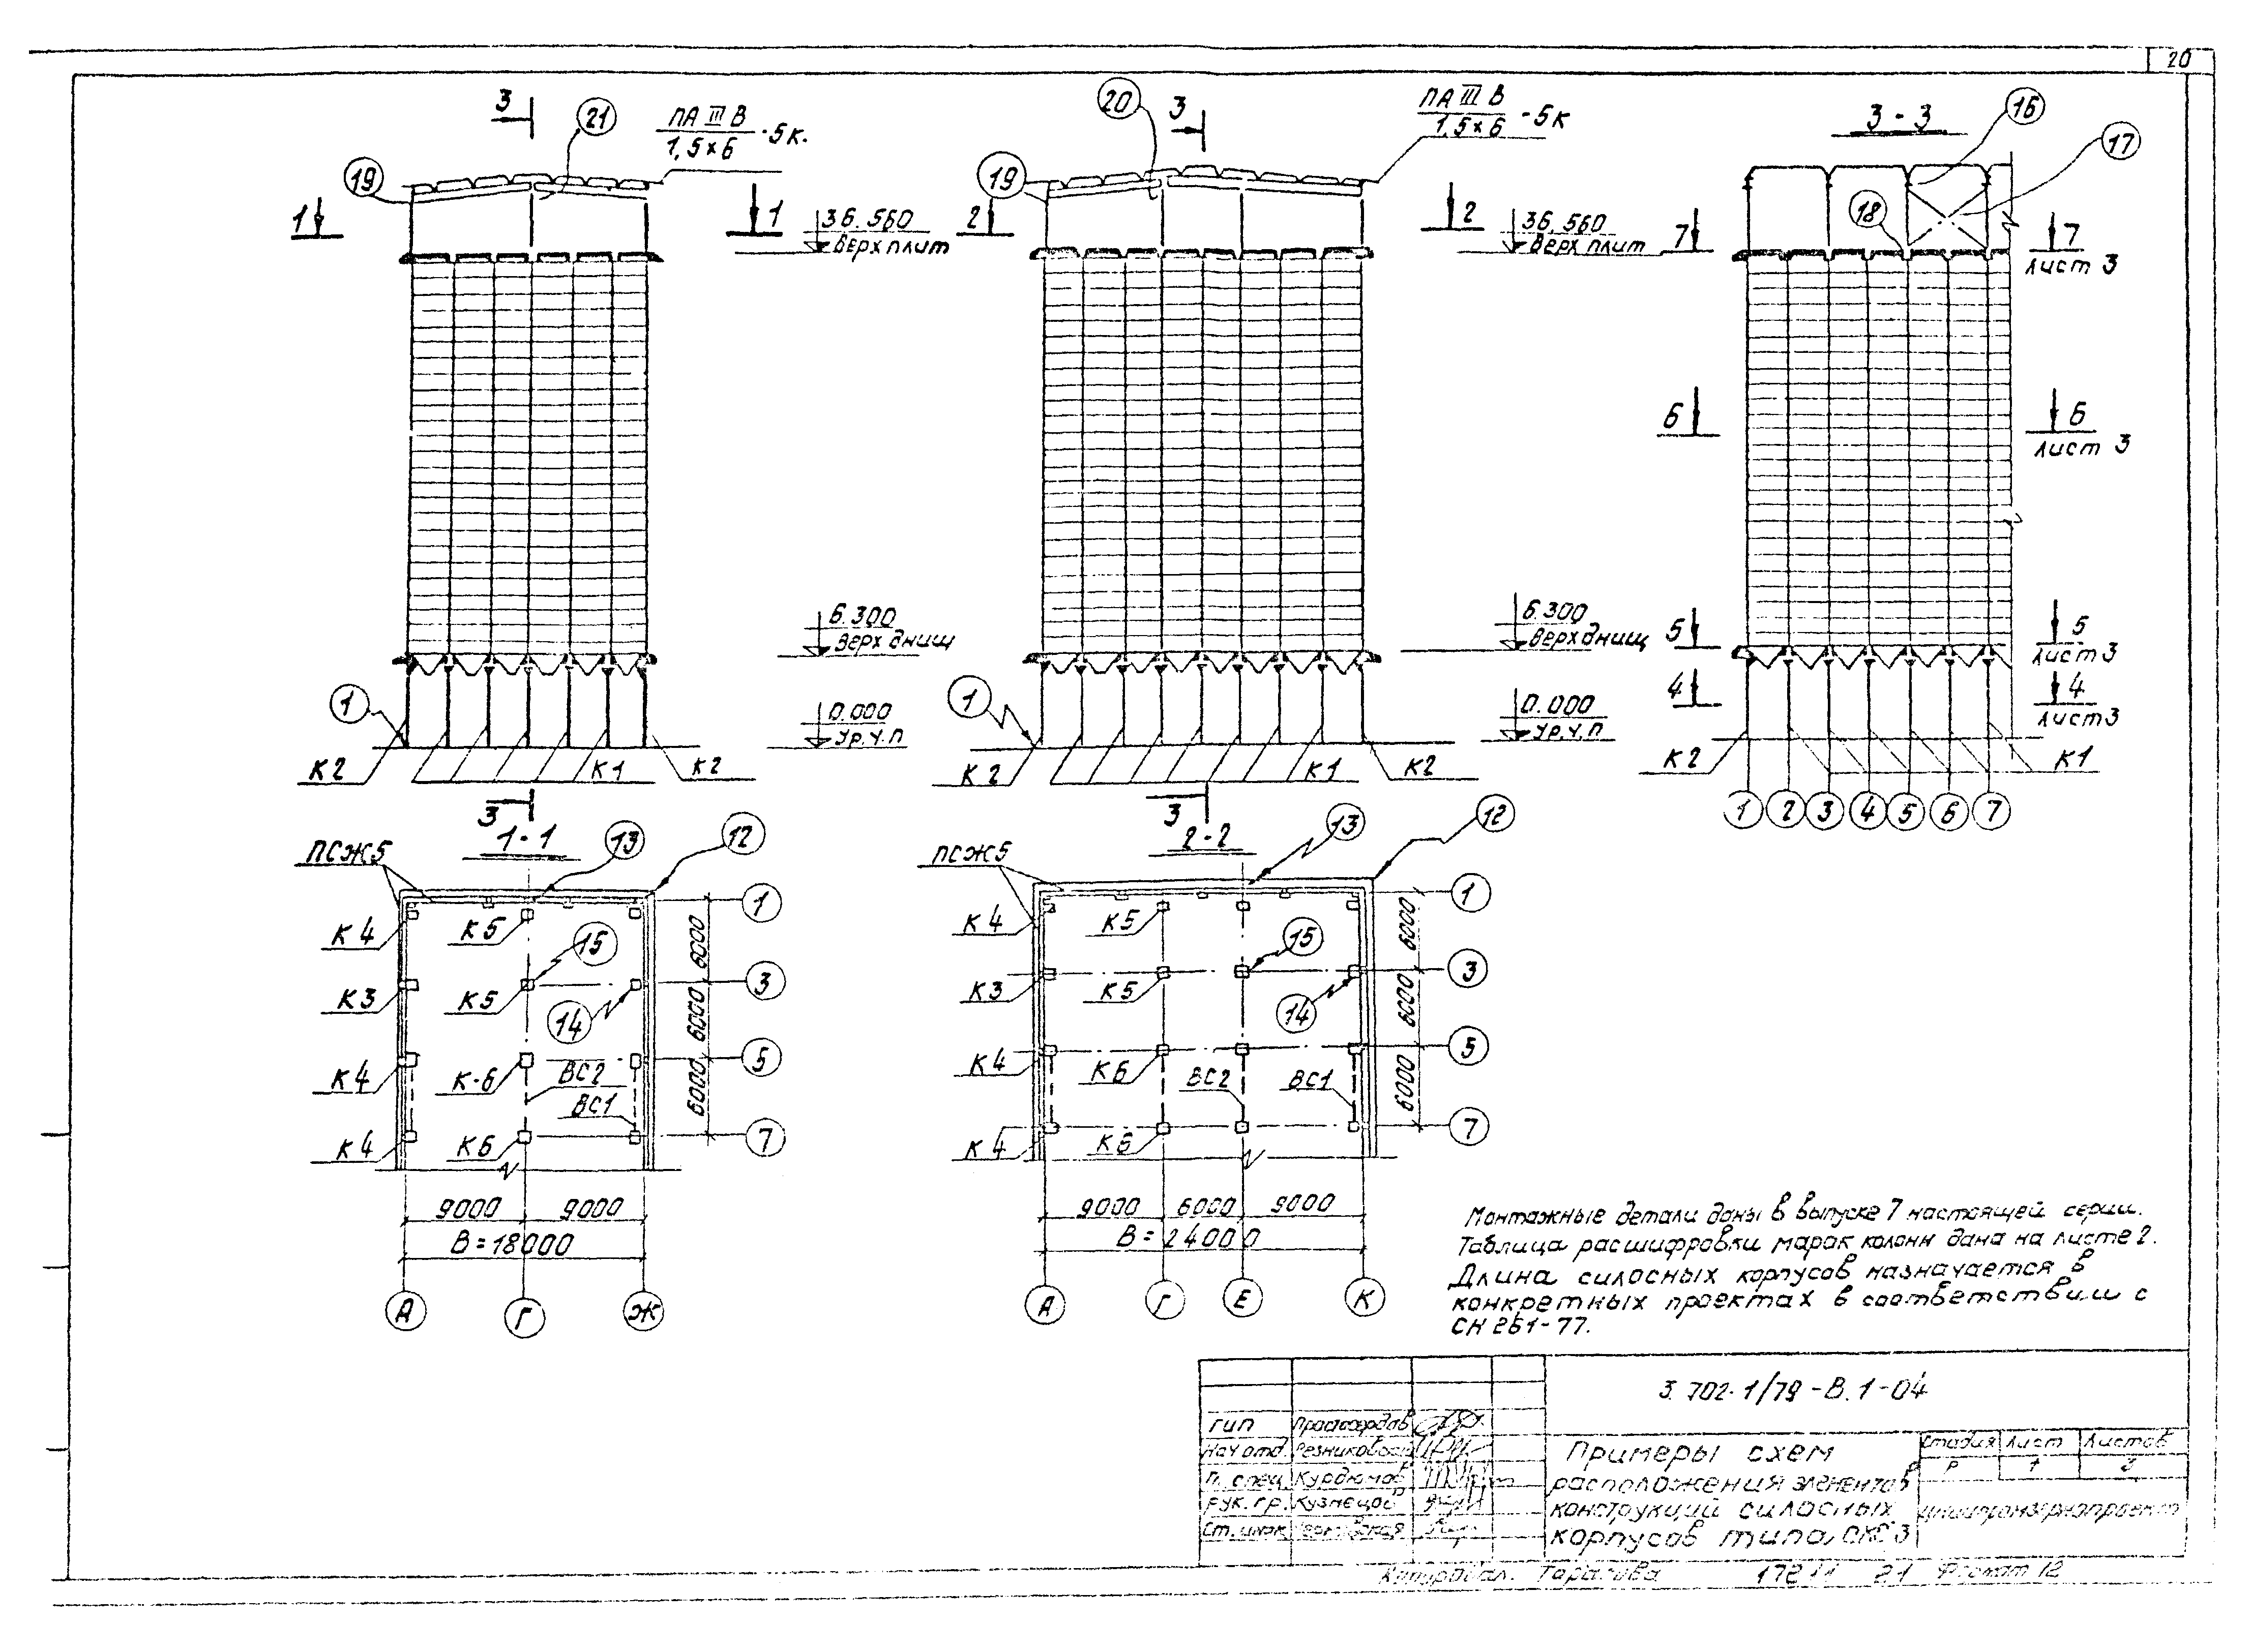 20
3
21
ПА III В
1,5×6
-5к.
19
1
1
36.560
Верх плит
6.300
Верх днищ
0.000
Ур.ч.п
1
К2
К1
К2
3
20
3
ПА III В
1,5×6
-5к
19
2
2
36.560
Верх плит
6.300
Верх днищ
0.000
Ур.ч.п
1
К2
К1
К2
3
3-3
16
17
18
7
7
Лист 3
6
6
Лист 3
5
5
Лист 3
4
4
Лист 3
К2
К1
1 2 3 4 5 6 7
1-1
13
12
ПСЖ5
К4
К5
1
15
К3
К5
14
3
К4
К-6
ВС2
ВС1
5
К4
К6
7
6000
6000
6000
9000 9000
В=18000
А Г Ж
2-2
13
12
ПСЖ5
К4
К5
1
15
К3
К5
14
3
К4
К6
ВС2
ВС1
5
К4
К6
7
6000
6000
6000
9000 6000 9000
В=24000
А Г Е К
Монтажные детали даны в выпуске 7 настоящей серии.
Таблица расшифровки марок колонн дана на листе 2.
Длина силосных корпусов назначается в
конкретных проектах в соответствии с
СН 261-77.
3.702-1/79-В.1-04
ГИП
Нач отд.
Гл. спец. Курдюмов
Рук. гр. Кузнецов
Ст. инж.
Примеры схем
расположения элементов
конструкций силосных
корпусов типа СКС 3
Стадия Лист Листов
Р 1 3
Копировал. Тарасова 17211 21 Формат 12